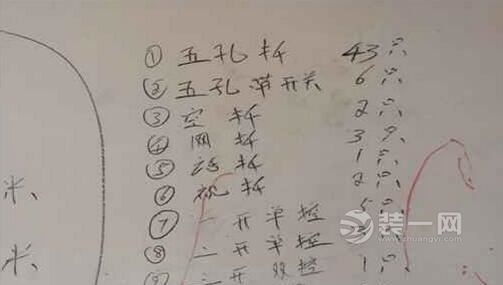 ① 五孔插 43只
② 五孔带开关 6只
③ 空插 2只
④ 网插 3只
⑤ 话插 1只
⑥ 视插 2只
⑦ 一开单控 5只
⑧ 二开单控
⑨ 二开双控 1只
米、
米、
装一网
www.zhuangyi.com